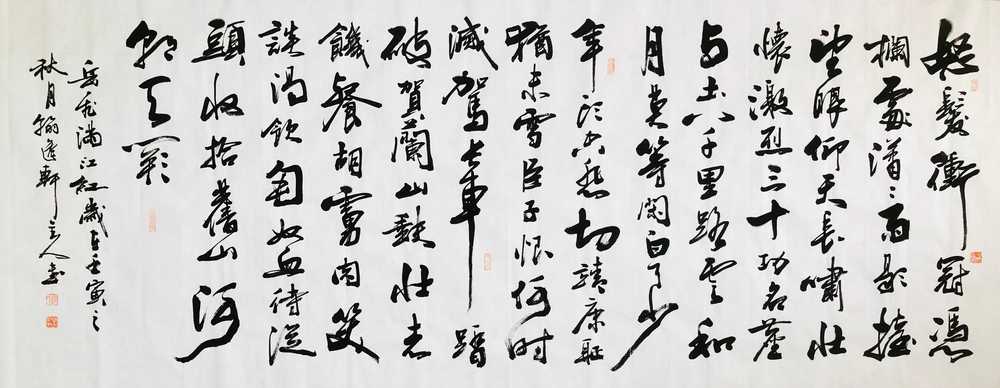 怒髮衝冠憑
欄處瀟々雨歇擡
望眼仰天長嘯壯
懷激烈三十功名塵
与土八千里路雲和
月莫等閑白了少
年頭空悲切靖康耻
猶未雪臣子恨何時
滅駕長車踏
破賀蘭山缺壯志
饑餐胡虜肉笑
談渴飲匈奴血待從
頭收拾舊山河
朝天闕
岳飛滿江紅歲在壬寅之
秋月翰逸軒主人書